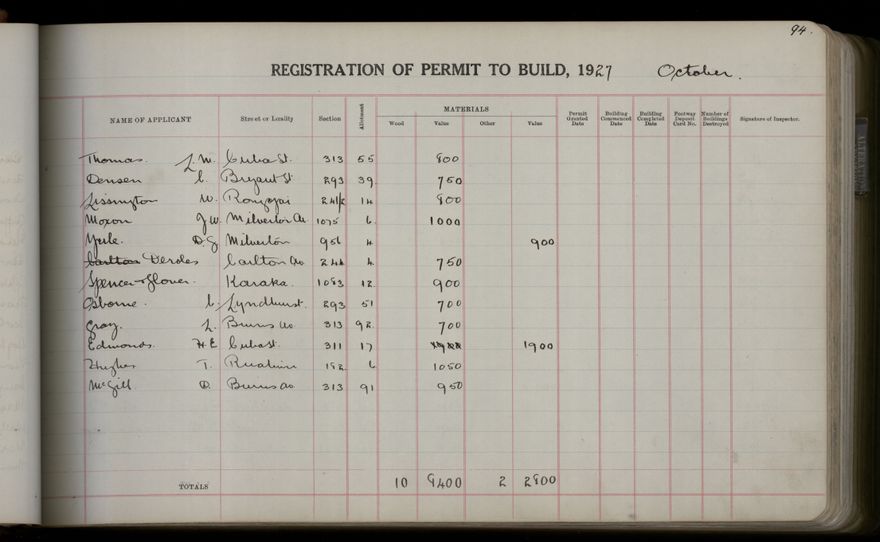 94.
REGISTRATION OF PERMIT TO BUILD, 1927 October.
NAME OF APPLICANT Street or Locality Section Allotment MATERIALS Wood Value Other Value Permit Granted Date Building Commenced Date Building Completed Date Footway Deposit Card No. Number of Buildings Destroyed Signature of Inspector.
Thomas. L.W. Cuba St. 313 55 800
Densen C. Bryant St 293 39 750
Lissington W. 14 800
Moxon J W. Milverton Av. 1075 6 1000
Yule. D.G Milverton 956 4 900
Carlton Deroles Carlton Av. 244 4 750
Spencer & Glover. Karaka. 1083 12 900
Osborne. C. Lyndhurst. 293 51 700
Gray. L. Burns Av. 313 92 700
Edmonds. H E Cuba St. 311 17 1900 1900
Hughes T. Ruahine 192 6 1050
McGill D. Burns Av. 313 91 950
TOTALS 10 9400 2 2800